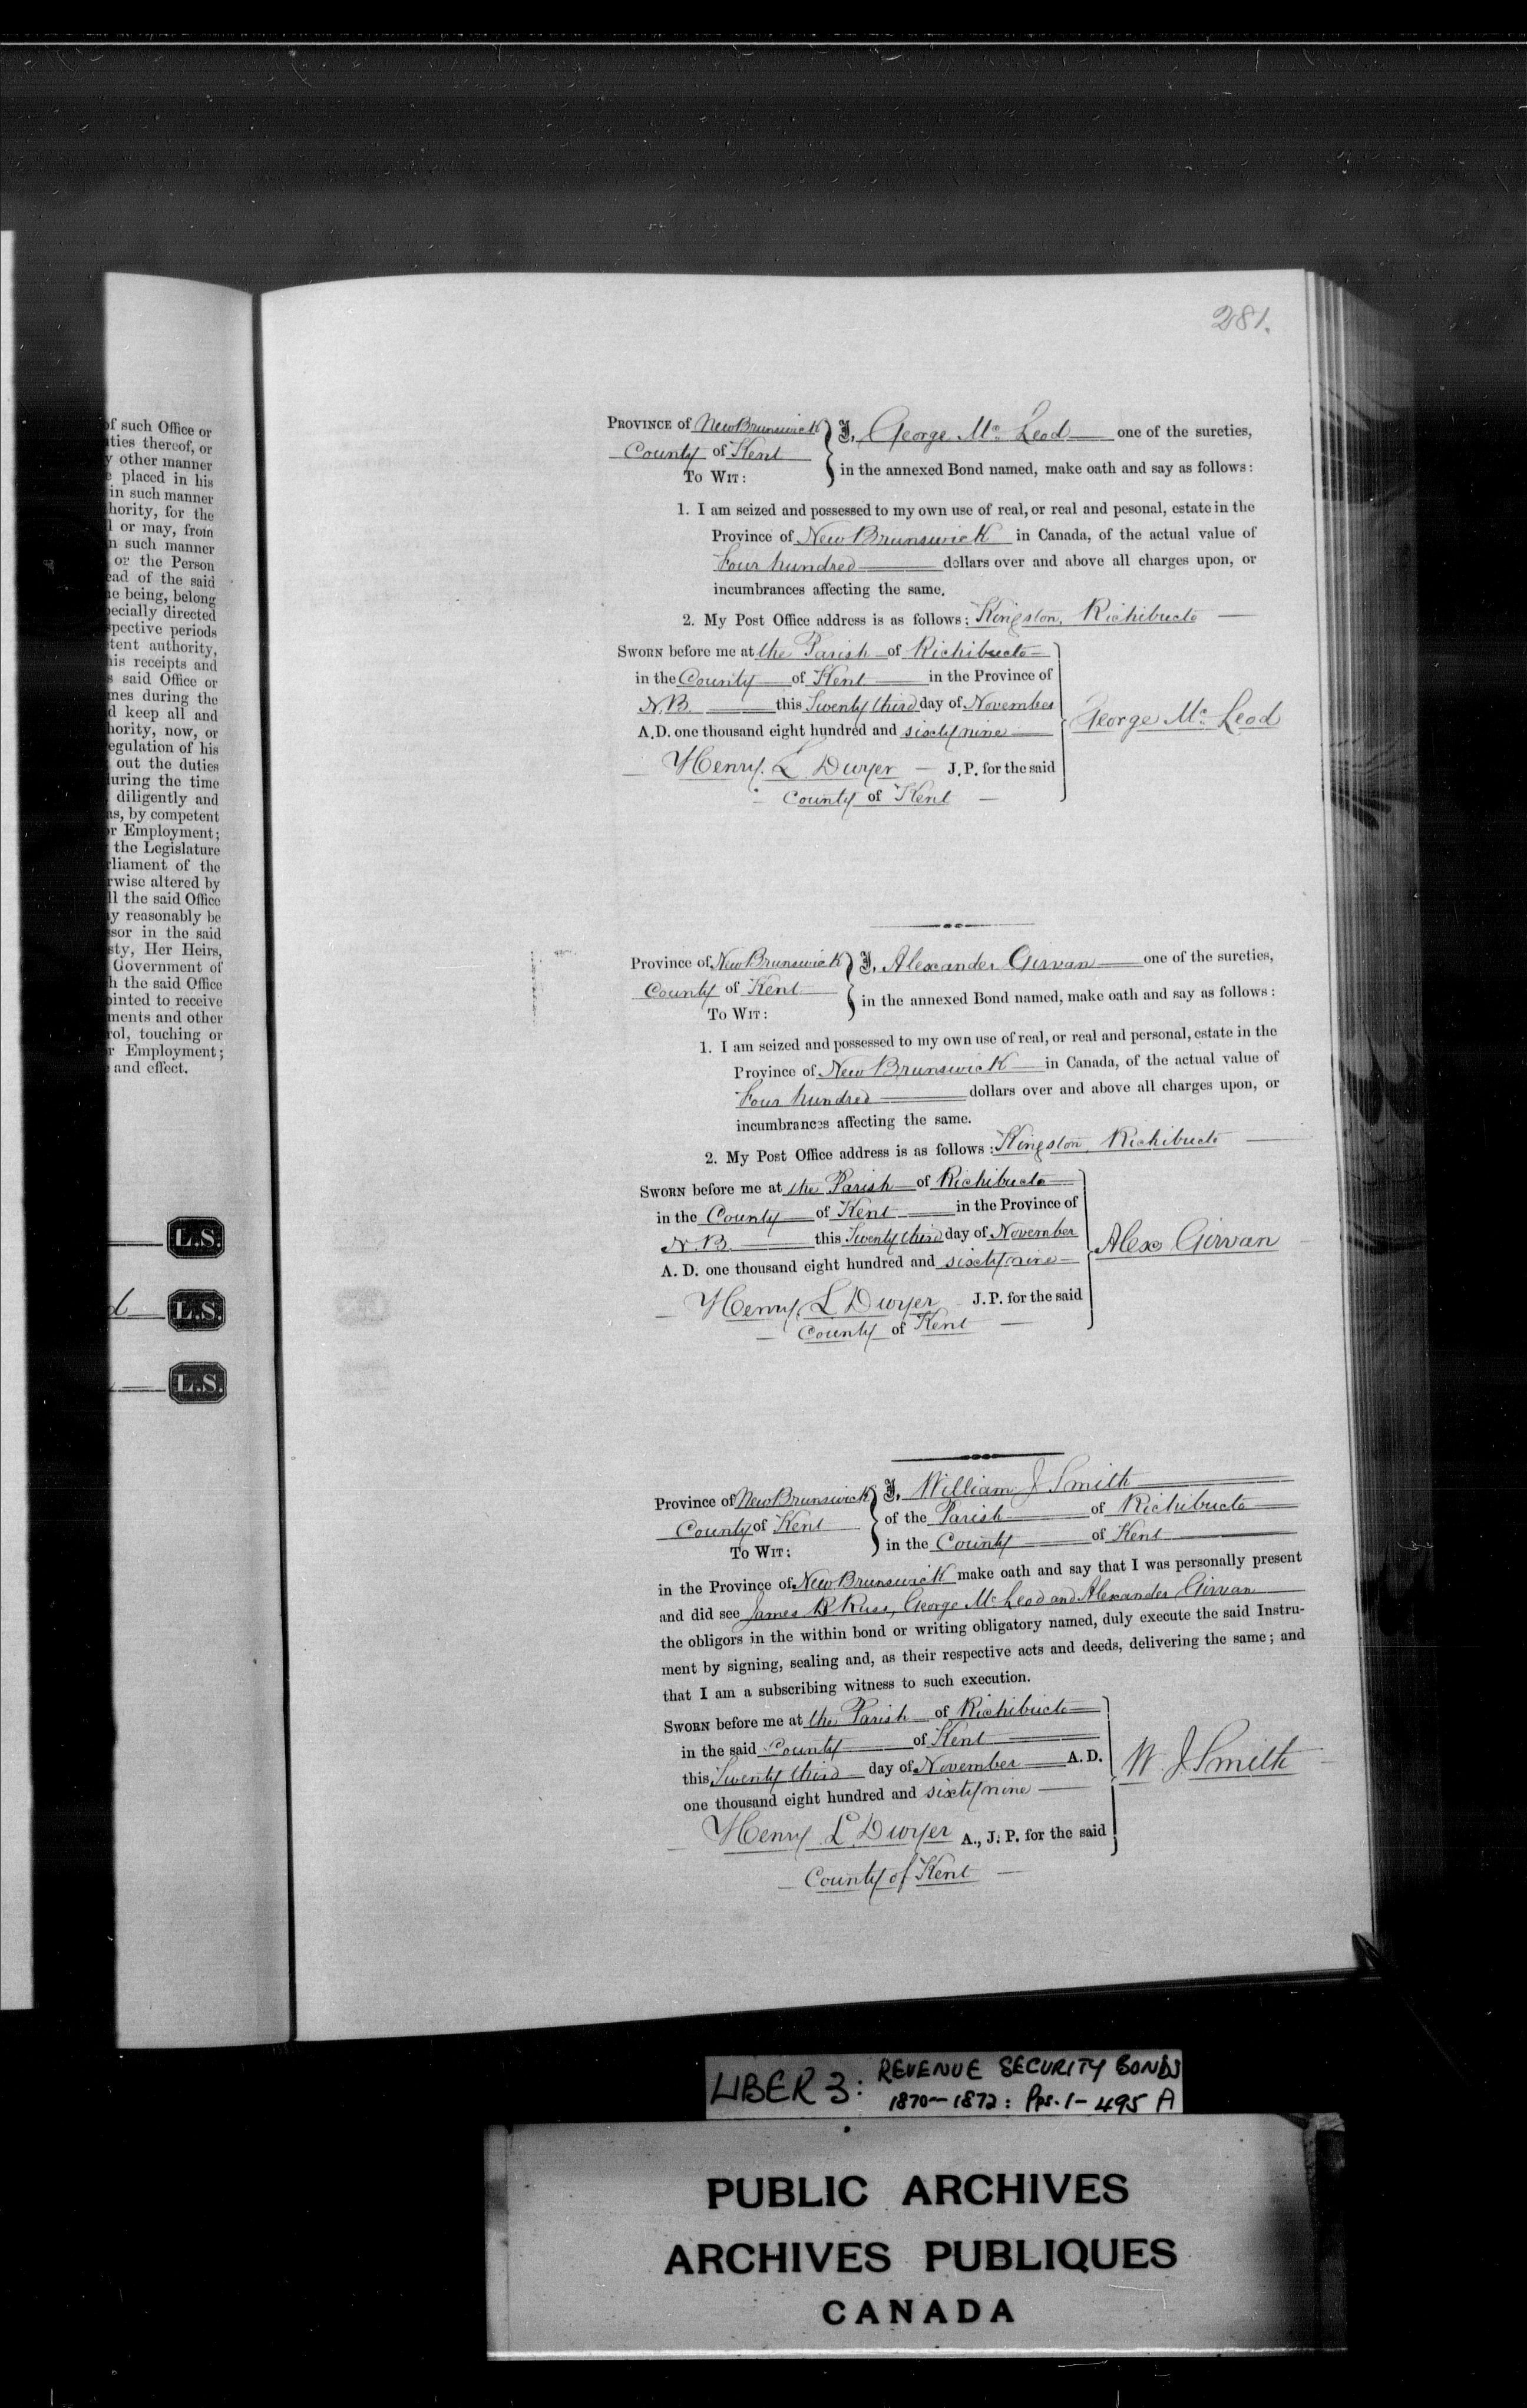 of such Office or
ties thereof, or
y other manner
e placed in his
in such manner
hority, for the
l or may, from
n such manner
or the Person
ead of the said
e being, belong
ecially directed
spective periods
tent authority,
his receipts and
s said Office or
mes during the
d keep all and
hority, now, or
egulation of his
out the duties
during the time
diligently and
as, by competent
r Employment;
the Legislature
rliament of the
rwise altered by
ll the said Office
y reasonably be
ssor in the said
sty, Her Heirs,
Government of
h the said Office
ointed to receive
ments and other
rol, touching or
r Employment;
and effect.
L.S.
d L.S.
L.S.
281.
PROVINCE of New Brunswick } I, George Mc Leod one of the sureties,
County of Kent
TO WIT: in the annexed Bond named, make oath and say as follows:
1. I am seized and possessed to my own use of real, or real and pesonal, estate in the
Province of New Brunswick in Canada, of the actual value of
Four hundred dollars over and above all charges upon, or
incumbrances affecting the same.
2. My Post Office address is as follows: Kingston, Richibucto
SWORN before me at the Parish of Richibucto
in the County of Kent in the Province of
N.B. this Twenty third day of November
A.D. one thousand eight hundred and sixty nine
George Mc Leod
Henry. L. Dwyer J.P. for the said
County of Kent
Province of New Brunswick } I, Alexander Girvan one of the sureties,
County of Kent
TO WIT: in the annexed Bond named, make oath and say as follows:
1. I am seized and possessed to my own use of real, or real and personal, estate in the
Province of New Brunswick in Canada, of the actual value of
Four hundred dollars over and above all charges upon, or
incumbrances affecting the same.
2. My Post Office address is as follows: Kingston, Richibucto
SWORN before me at the Parish of Richibucto
in the County of Kent in the Province of
N.B. this Twenty third day of November
A. D. one thousand eight hundred and sixty nine
Alex Girvan
Henry. L. Dwyer J.P. for the said
County of Kent
Province of New Brunswick } I, William J Smith
County of Kent of the Parish of Richibucto
TO WIT: in the County of Kent
in the Province of New Brunswick make oath and say that I was personally present
and did see James R Russ, George Mc Leod and Alexander Girvan
the obligors in the within bond or writing obligatory named, duly execute the said Instru-
ment by signing, sealing and, as their respective acts and deeds, delivering the same; and
that I am a subscribing witness to such execution.
SWORN before me at the Parish of Richibucto
in the said County of Kent
this Twenty third day of November A.D.
one thousand eight hundred and sixty nine
W. J. Smith
Henry L. Dwyer A., J. P. for the said
County of Kent
LIBER 3: REVENUE SECURITY BONDS
1870-1872: Pps. 1-495 A
PUBLIC ARCHIVES
ARCHIVES PUBLIQUES
CANADA